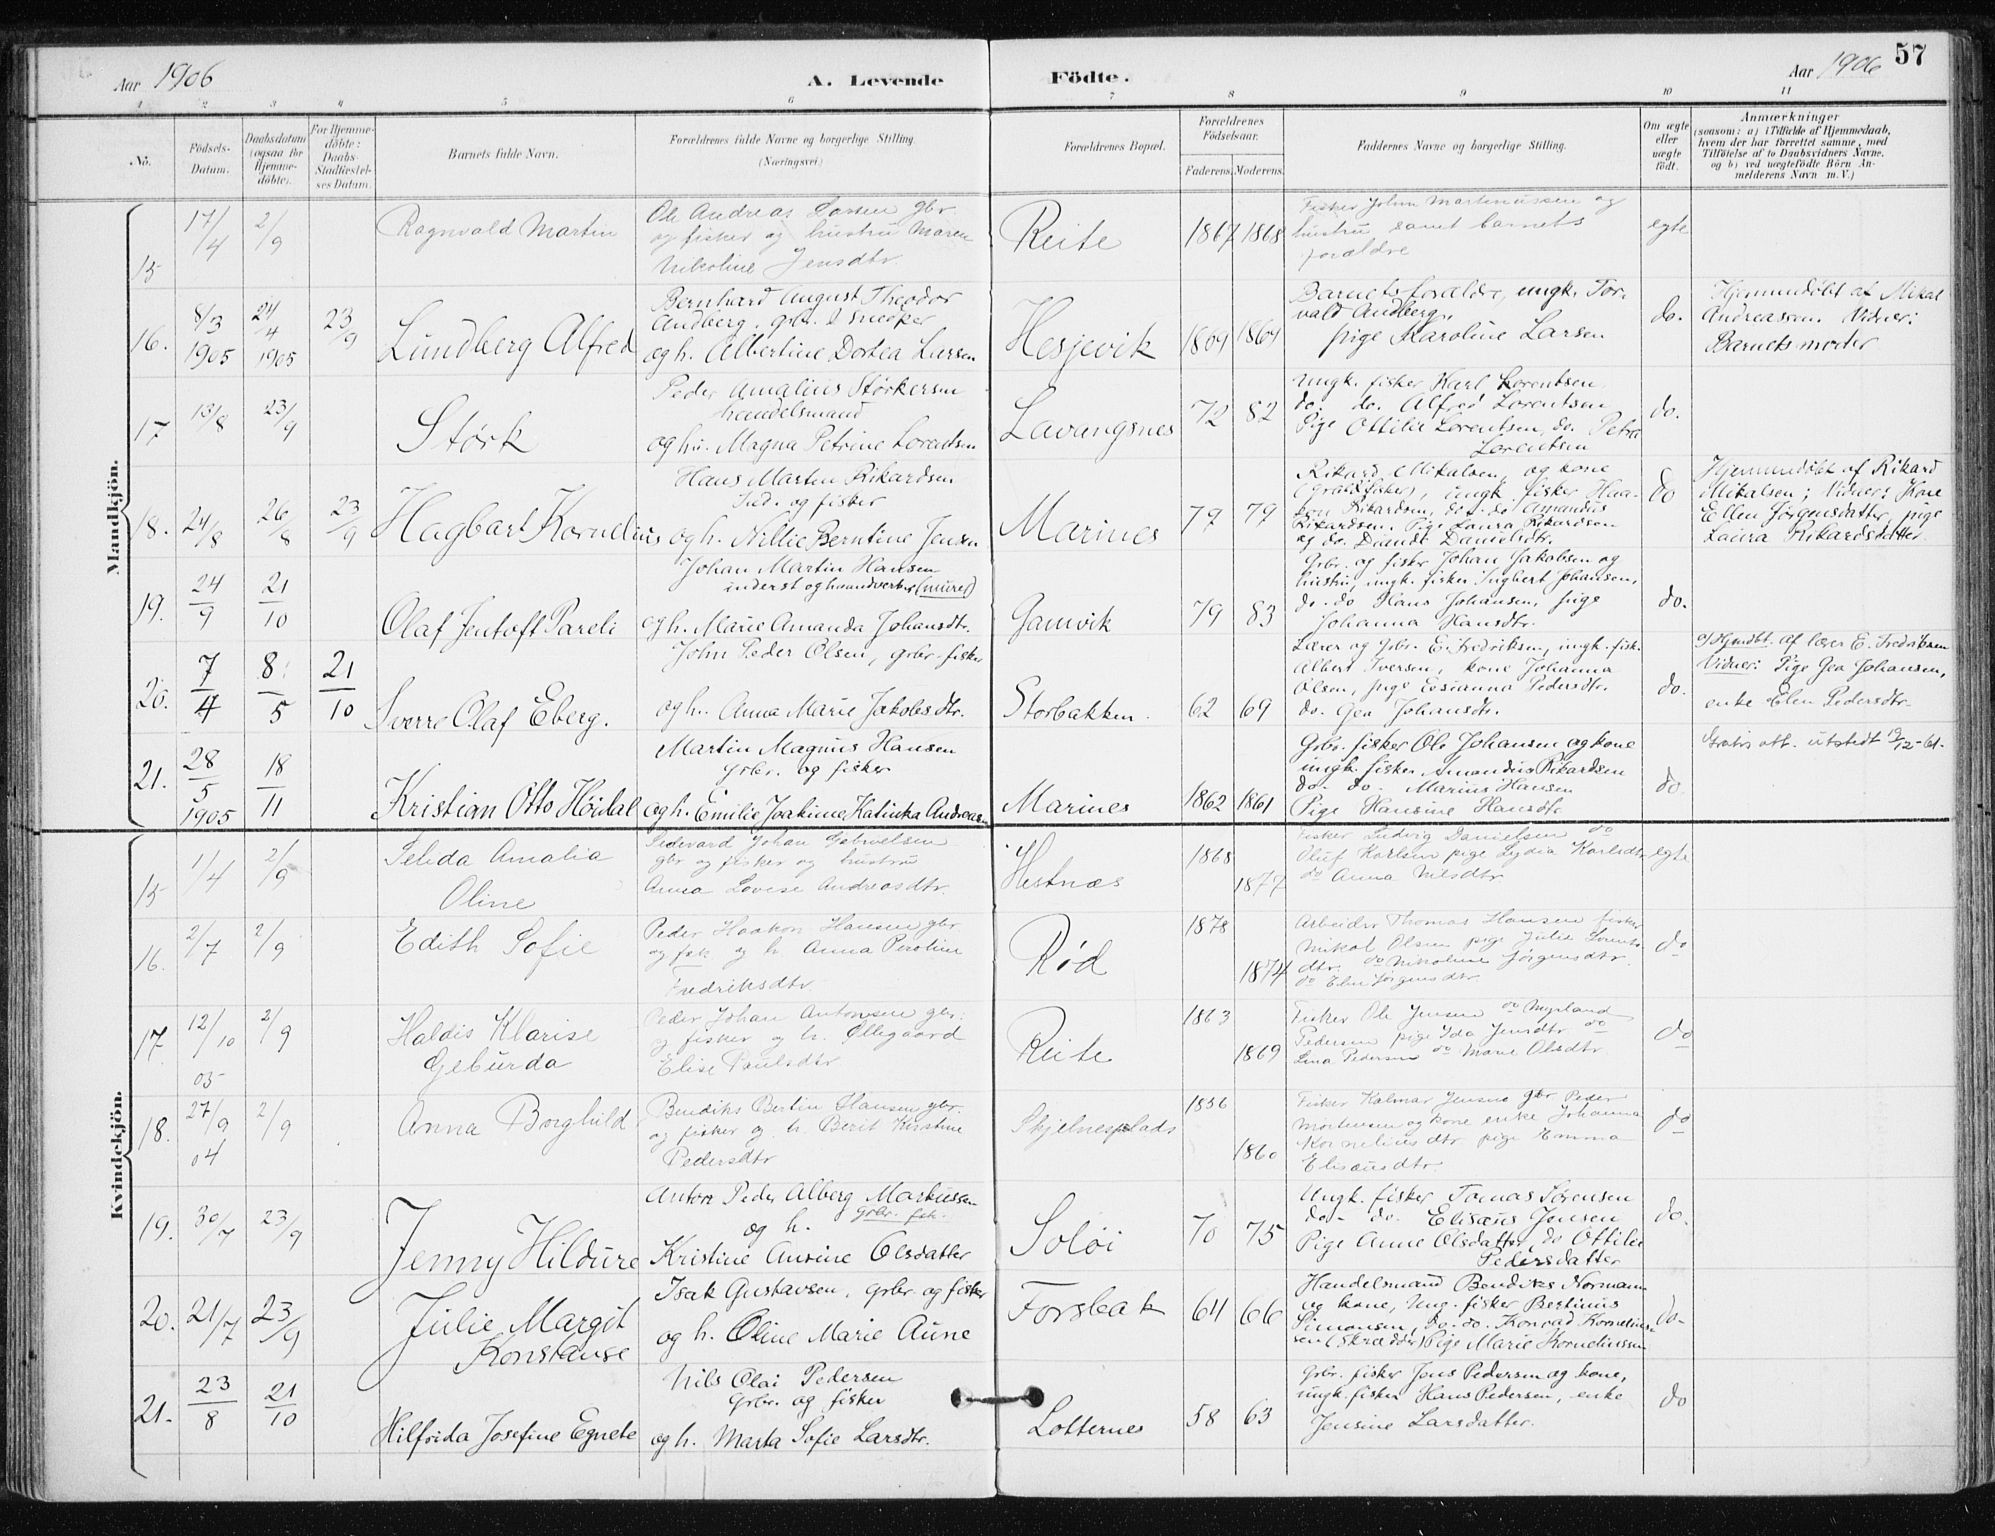 57
Aar 1906
A. Levende Födte.
Aar 1906
1 2 3 4 5 6 7 8 9 10 11
No.
Födsels-Datum.
Daabsdatum (ogsaa for Hjemme-döbte).
For Hjemme-döbte: Daabs-Stadfæstel-ses Datum.
Barnets fulde Navn.
Forældrenes fulde Navne og borgerlige Stilling. (Næringsvei.)
Forældrenes Bopæl.
Forældrenes Födselsaar.
Faderens. Moderens.
Faddernes Navne og borgerlige Stilling.
Om ægte eller uægte födt.
Anmærkninger
(saasom: a) i Tilfælde af Hjemmedaab,
hvem der har forrettet samme, med
Tilföielse af to Daabsvidners Navne,
og b) ved uægtefödte Börn An-
melderens Navn m. V.)
Mandkjön.
15 17/4 2/9 Ragnvald Martin
Ole Andreas Larsen gbr.
og fisker og hustru Maren
Nikoline Jensdtr.
Reite 1867 1868
Fisker Johan Martinussen og
hustru samt barnets
forældre
egte
16. 8/3 1905 24/4 1905 23/9 Lundberg Alfred
Bernhard August Theodor
Andberg, grbr. & sneker
og h. Albertine Dortea Larsen
Hesjevik 1869 1864
Barnets forældre, ungk. Tor-
vald Andberg,
pige Karoline Larsen
do.
Hjemmedöbt af Mikal
Andreassen. Vidner:
Barnets moder
17 13/8 23/9 Størk
Peder Amalius Størkersen
handelsmand
og hu. Magna Petrine Lorentsen
Lavangsnes 72 82
Ungk. fisker Karl Lorentsen
do. do. Alfred Lorentsen
Pige Ottilie Lorentsen, do. Petra
Lorentsen
do.
18. 24/8 26/8 23/9 Hagbart Kornelius
Hans Martin Rikardsen
Ind. og fisker
og h. Nillie Berntine Jensen
Marines 77 79
Rikard Mikalsen, og kone
ungk. fisker Haa-
kon Rikardsen, do. do Amandus
Rikardsen. Pige Laura Rikardsen
og do. Danieldtr.
do
Hjemmedöbt af Rikard
Mikalsen; Vidner: Kone
Ellen Jørgensdatter, pige
Laura Rikardsdatter
19. 24/9 21/10 Olaf Jentoft Pareli
Johan Martin Hansen
inderst og haandverker (murer)
og h. Marie Amanda Johansdtr.
Gamvik 79 83
Grbr. og fisker Johan Jakobsen og
hustru, ungk. fisker Ingbert Johansen,
do. do Hans Johansen, pige
Johanna Hansdtr.
do.
20. 7/4 8/5 21/10 Sverre Olaf Eberg.
John Peder Olsen, grbr. fisker
og h. Anna Marie Jakobsdtr.
Storbakken. 62 69
Lærer og Grbr. E. Fredriksen, ungk. fisk.
Albert Iversen, kone Johanna
Olsen, pige Pedersdtr.
do. Gea Johansdtr.
do.
Hjmdbt. af lærer E. Fredriksen
Vidner: Pige Gea Johansen,
enke Elen Pedersdtr.
21. 28/5 1905 18/11 Kristian Otto Höidal
Martin Magnus Hansen
Grbr. og fisker
og h. Emilie Joakime Katinka Andreasen
Marines 1862 1861
Grbr. fisker Ole Johansen og kone
ungk. fisker Amandus Rikardsen
do. do. Marius Hansen
Pige Hansine Hansdtr.
do.
Gratis att. utstedt 19/12-61.
Kvindekjön.
15 1/4 2/9 Selida Amalia
Oline
Johan
gbr og fisker og hustru
Anna Lovise Andreasdtr.
Hestnæs 1868 1877
Fisker Ludvig Danielsen do
Oluf Karlsen pige Lydia Karlsdtr
do Anna Nilsdtr.
egte
16. 2/7 2/9 Edith Sofie
Peder Haakon Hansen gbr.
og fisk og h. Anna Peroline
Fredriksdtr
Rød 1878 1874
Arbeider Thomas Hansen fisker
Mikal Olsen pige Julie
dtr. do Nikoline Jørgensdtr.
do Elen Jørgensdtr.
do
17. 12/10 05 2/9 Haldis Klarise
Geburda
Peder Johan Antonsen gbr.
og fisker og h. Ollegaard
Elise Paulsdtr
Reite 1863 1869
Fisker Ole Jensen do Nyrland
Pedersen pige Ida Jensdtr do
Lina Pedersen do Marie Olsdtr
do
18. 27/9 04 2/9 Anna Borghild
Bendiks Bertin Hansen gbr.
og fisker og h. Berit Kirstine
Pedersdtr
Skjelnesplads 1856 1860
Fisker Kalmar Jensen gbr Peder
Mortensen og kone enke Johanna
Korneliusdtr. pige Emma
Elisæusdtr.
do
19. 30/7 23/9 Jenny Hildure
Anton Peder Alberg Markussen
Grbr. fisk.
og h.
Kristine Ansine Olsdatter
Soløi 70 75
Ungk. fisker Tomas Sørensen
do. do. Elisæus Jensen
Pige Anne Olsdatter, do Ottilie
Pedersdatter
do.
20. 21/7 23/9 Julie Margit
Konstanse
Isak Gustavsen, grbr og fisker
og h. Oline Marie Aune
Forsbak 64 66
Handelsmand Bendiks Normann
og kone, Ung. fisker Bertinus
Simonsen, do. do. Konrad Kornelius-
sen (Skrædder) Pige Marie Korneliussen
do-
21. 23/8 21/10 Hilfrida Josefine Egnete
Nils Olai Pedersen
Grbr. og fisker
og h. Marta Sofie Larsdtr.
Lotternes 58 63
Grbr. fisker Jens Pedersen og kone,
ungk. fisker Hans Pedersen, enke
Jensine Larsdatter.
do